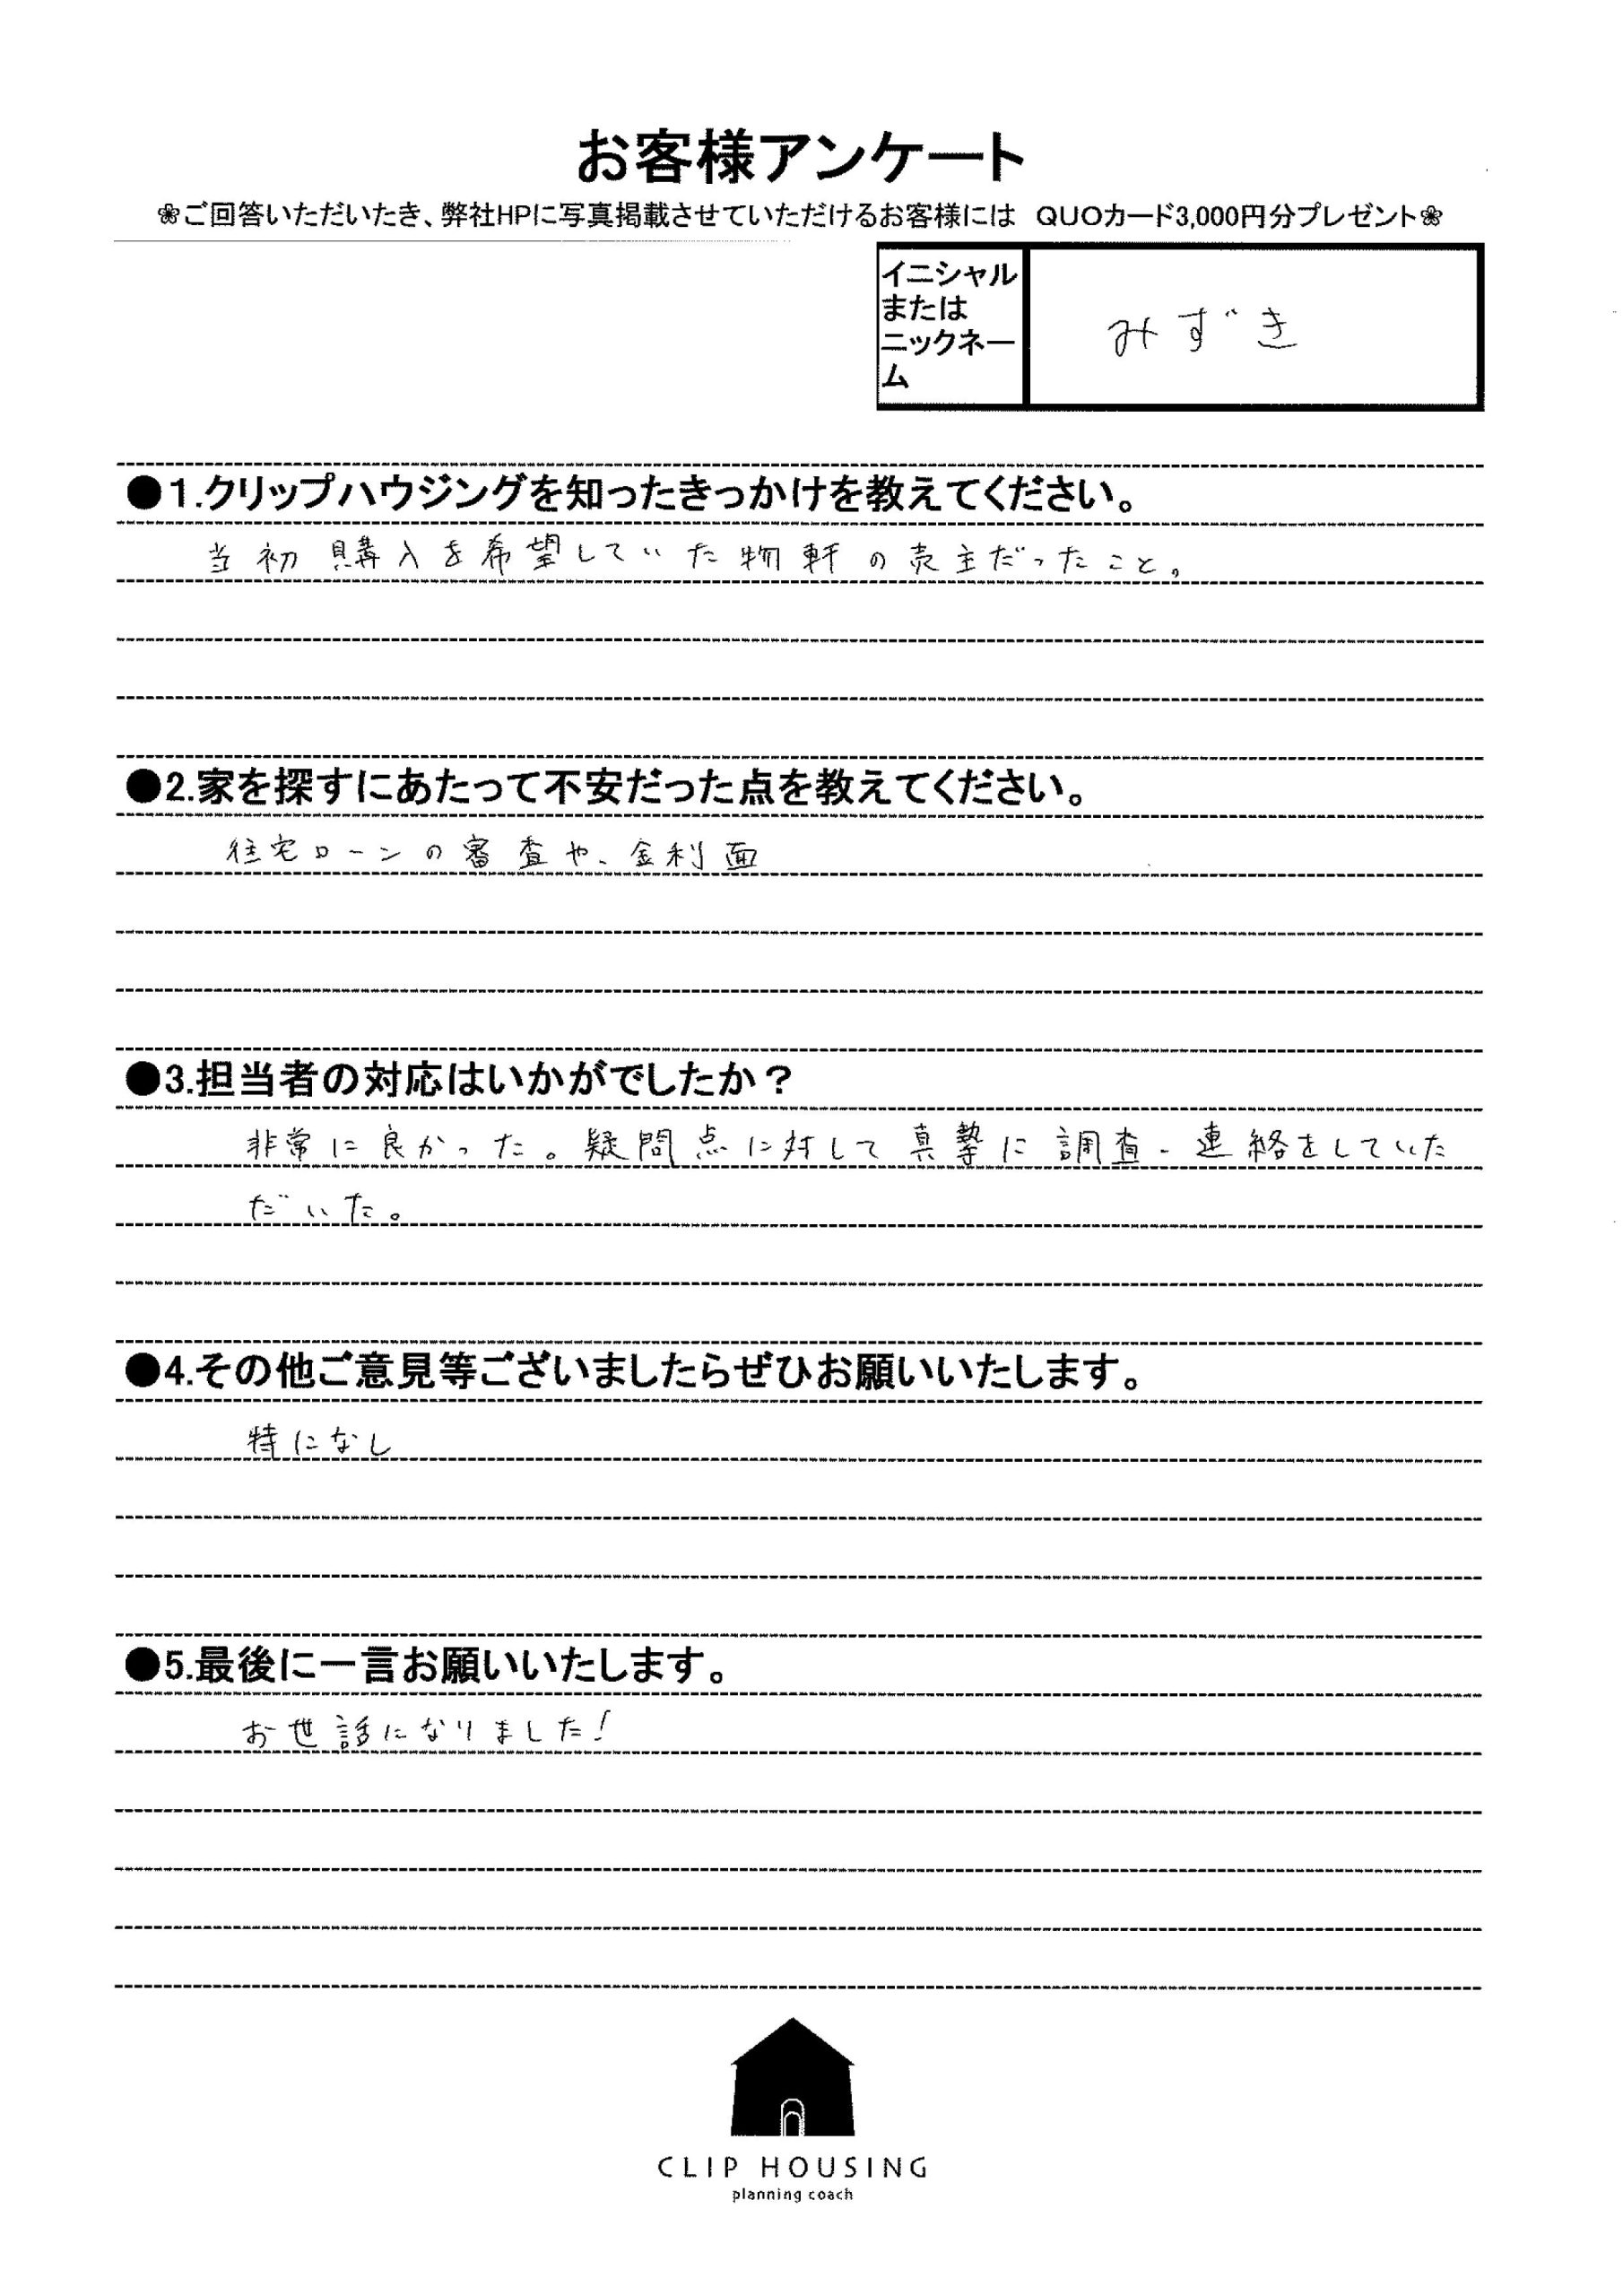 お客様アンケート
❀ご回答いただいたき、弊社HPに写真掲載させていただけるお客様には QUOカード3,000円分プレゼント❀
イニシャル
または
ニックネー
ム
みずき
●1.クリップハウジングを知ったきっかけを教えてください。
当初購入を希望していた物軒の売主だったこと。
●2.家を探すにあたって不安だった点を教えてください。
住宅ローンの審査や、金利面
●3.担当者の対応はいかがでしたか？
非常に良かった。疑問点に対して真摯に調査・連絡をしていた
だいた。
●4.その他ご意見等ございましたらぜひお願いいたします。
特になし
●5.最後に一言お願いいたします。
お世話になりました！
CLIP HOUSING
planning coach